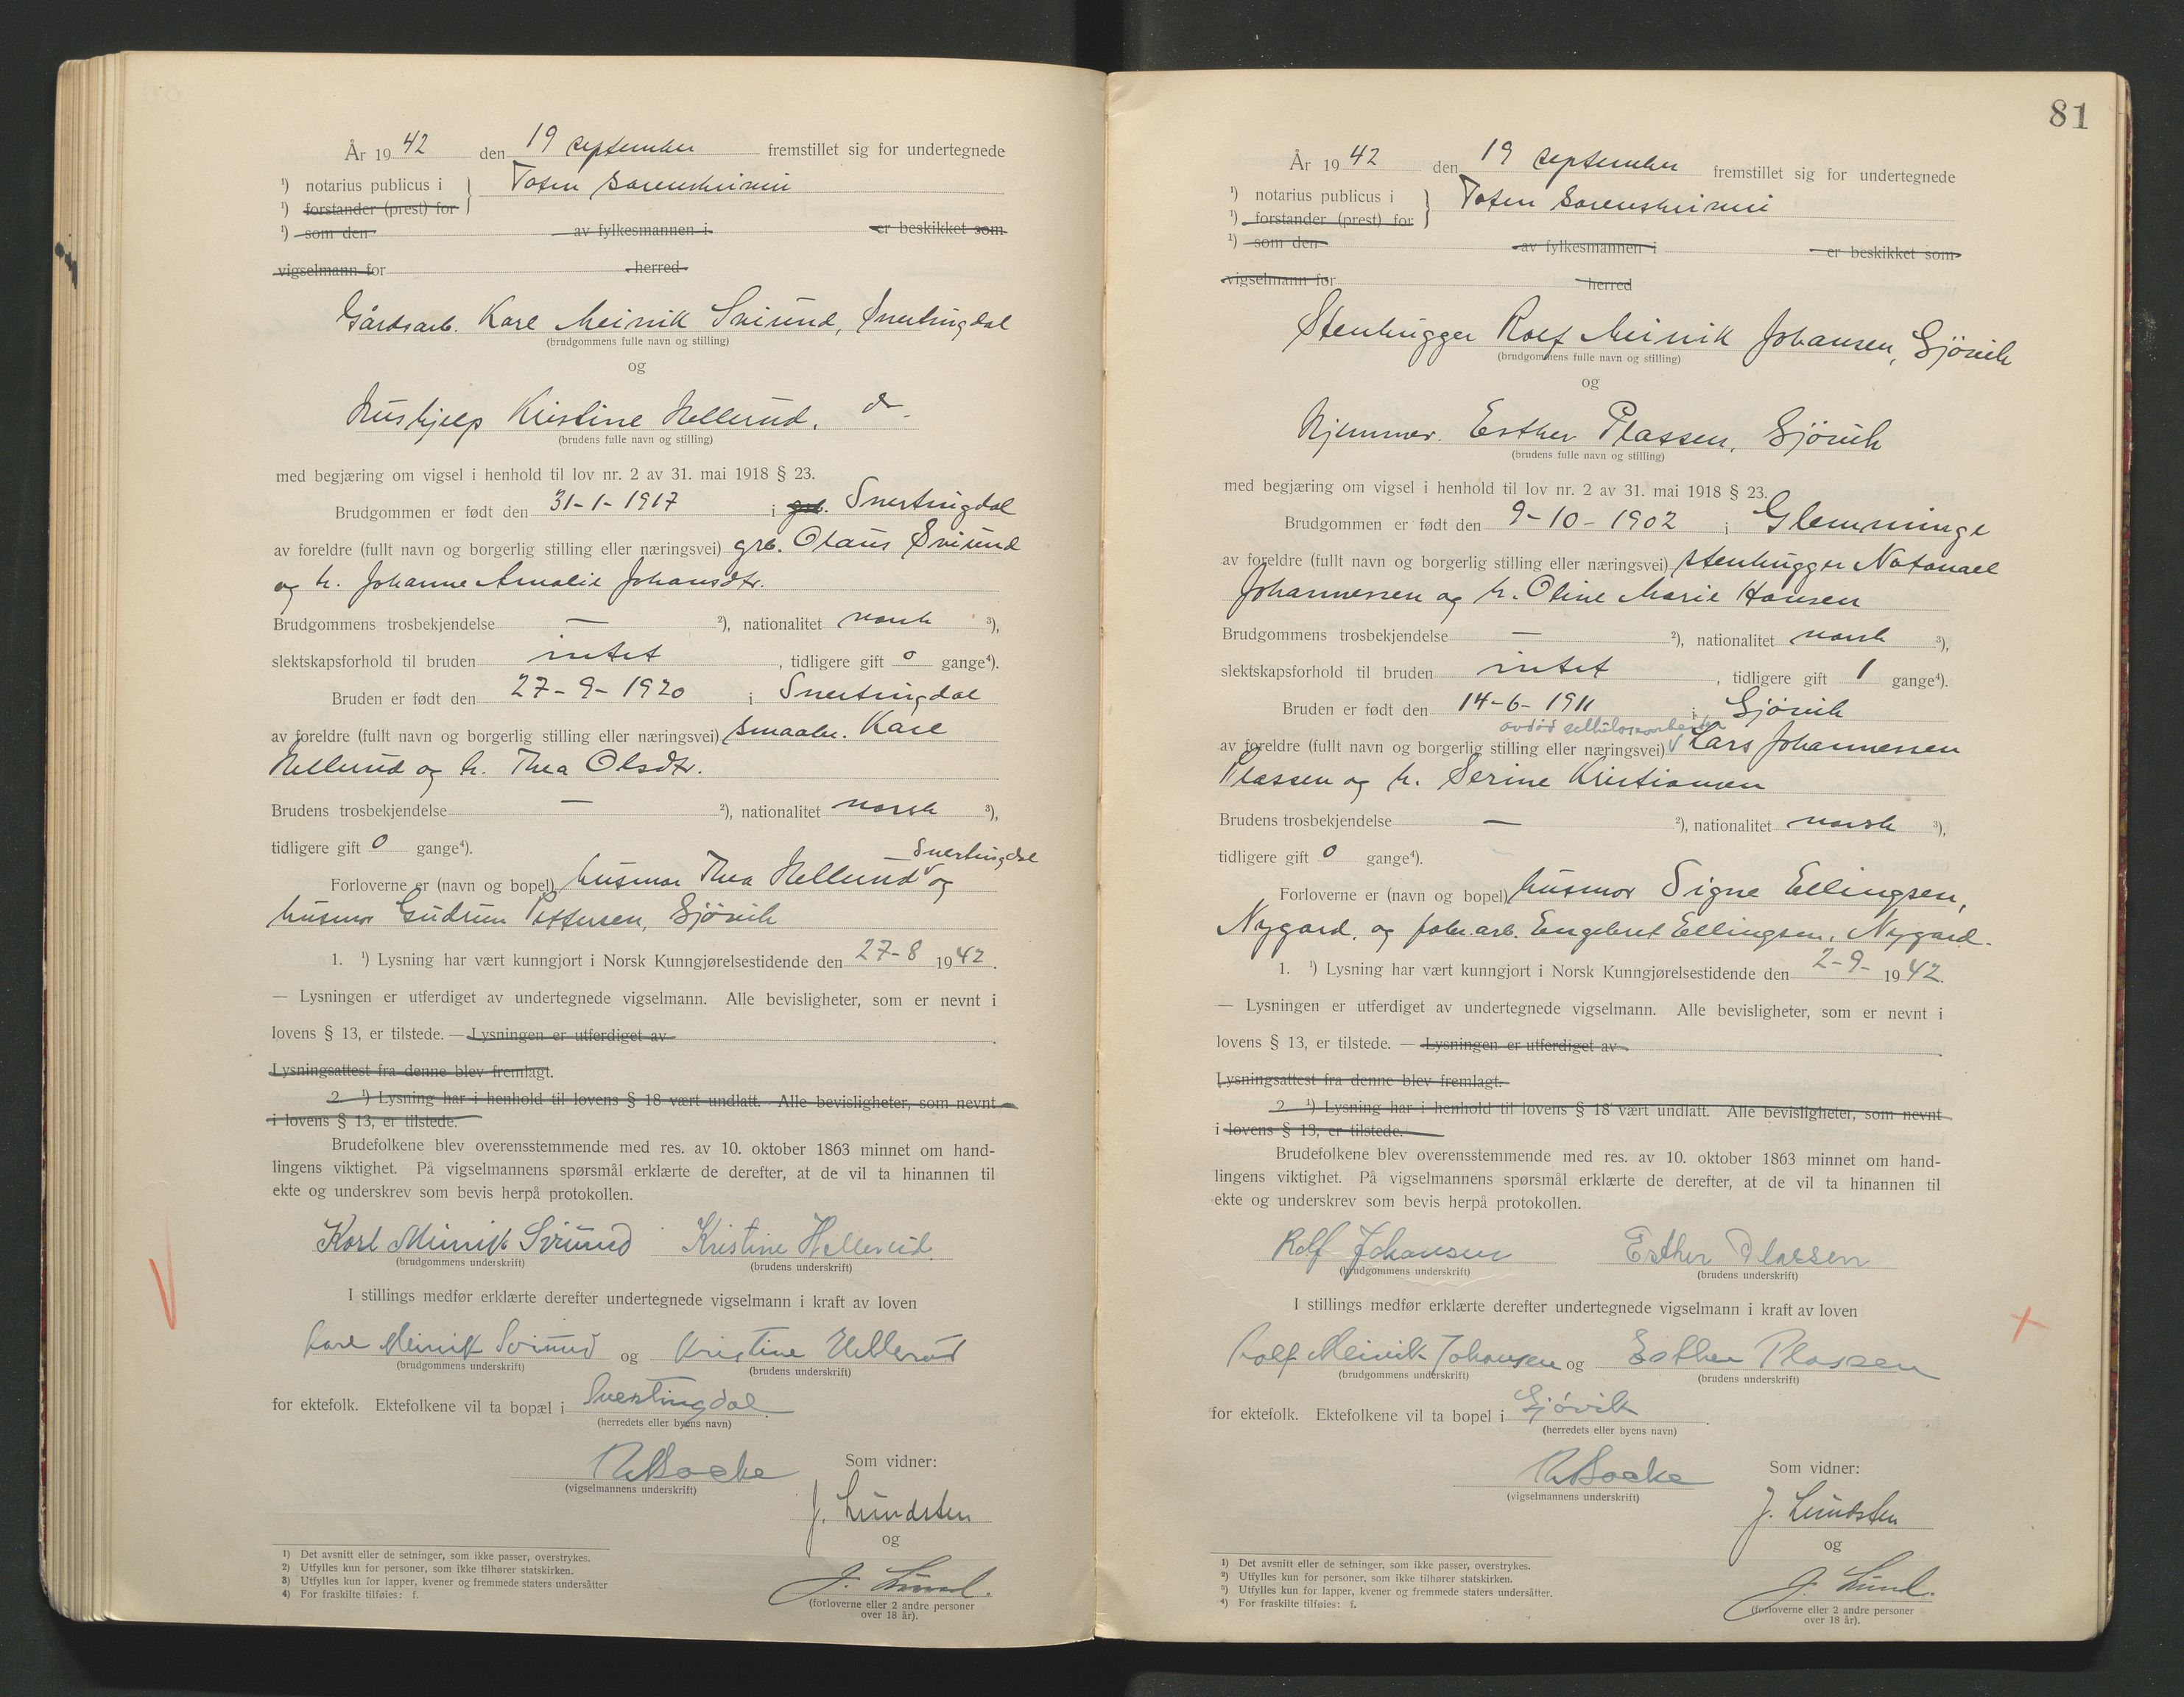 År 1942 den 19 september fremstillet sig for undertegnede
¹) notarius publicus i } Toten Sorenskriveri
¹) forstander (prest) for
¹) som den av fylkesmannen i er beskikket som
vigselmann for herred
Gårdsarb. Karl Meinik Sviund, Snertingdal
(brudgommens fulle navn og stilling)
og
Hushjelp Kristine Hellerud, do.
(brudens fulle navn og stilling)
med begjæring om vigsel i henhold til lov nr. 2 av 31. mai 1918 § 23.
Brudgommen er født den 31-1-1917 i Snertingdal
av foreldre (fullt navn og borgerlig stilling eller næringsvei) grb. Olaus Sviund
og h. Johanne Amalie Johansdtr.
Brudgommens trosbekjendelse — ²), nationalitet norsk ³),
slektskapsforhold til bruden intet, tidligere gift 0 gange⁴).
Bruden er født den 27-9-1920 i Snertingdal
av foreldre (fullt navn og borgerlig stilling eller næringsvei) smaabr. Karl
Hellerud og h. Thea Olsdtr.
Brudens trosbekjendelse — ²), nationalitet norsk ³),
tidligere gift 0 gange⁴).
Snertingdal
Forloverne er (navn og bopel) husmor Thea Hellerud og
husmor Gudrun Pettersen, Gjövik
1. ¹) Lysning har vært kunngjort i Norsk Kunngjørelsestidende den 27-8 1942.
— Lysningen er utferdiget av undertegnede vigselmann. Alle bevisligheter, som er nevnt i
lovens § 13, er tilstede. — Lysningen er utferdiget av
Lysningsattest fra denne blev fremlagt.
2 ¹) Lysning har i henhold til lovens § 18 vært undlatt. Alle bevisligheter, som nevnt
i lovens § 13, er tilstede.
Brudefolkene blev overensstemmende med res. av 10. oktober 1863 minnet om hand-
lingens viktighet. På vigselmannens spørsmål erklærte de derefter, at de vil ta hinannen til
ekte og underskrev som bevis herpå protokollen.
Karl Meinik Sviund Kristine Hellerud
(brudgommens underskrift) (brudens underskrift)
I stillings medfør erklærte derefter undertegnede vigselmann i kraft av loven
Karl Meinik Sviund og Kristine Hellerud
(brudgommens underskrift) (brudens underskrift)
for ektefolk. Ektefolkene vil ta bopæl i Snertingdal
(herredets eller byens navn)
(vigselmannens underskrift)
Som vidner:
J. Lundsten
og
J. Lund.
(forloverne eller 2 andre personer
over 18 år).
1) Det avsnitt eller de setninger, som ikke passer, overstrykes.
2) Utfylles kun for personer, som ikke tilhører statskirken.
3) Utfylles kun for lapper, kvener og fremmede staters undersåtter
4) For fraskilte tilføies: f.
81
År 1942 den 19 september fremstillet sig for undertegnede
¹) notarius publicus i } Toten Sorenskriveri
¹) forstander (prest) for
¹) som den av fylkesmannen i er beskikket som
vigselmann for herred
Stenhugger Rolf Meinik Johansen, Gjövik
(brudgommens fulle navn og stilling)
og
Hjemmev. Esther Plassen, Gjövik
(brudens fulle navn og stilling)
med begjæring om vigsel i henhold til lov nr. 2 av 31. mai 1918 § 23.
Brudgommen er født den 9-10-1902 i Glemminge
av foreldre (fullt navn og borgerlig stilling eller næringsvei) stenhugger Natanael
Johannessen og h. Oline Marie Hansen
Brudgommens trosbekjendelse — ²), nationalitet norsk ³),
slektskapsforhold til bruden intet, tidligere gift 1 gange⁴).
Bruden er født den 14-6-1911 i Gjövik
avdød cellulosearbeider
av foreldre (fullt navn og borgerlig stilling eller næringsvei) Lars Johannessen
Plassen og h. Serine Kristiansen
Brudens trosbekjendelse — ²), nationalitet norsk ³),
tidligere gift 0 gange⁴).
Forloverne er (navn og bopel) husmor Signe Ellingsen,
Nygard, og fabr.arb. Engebret Ellingsen, Nygard.
1. ¹) Lysning har vært kunngjort i Norsk Kunngjørelsestidende den 2-9- 1942.
— Lysningen er utferdiget av undertegnede vigselmann. Alle bevisligheter, som er nevnt i
lovens § 13, er tilstede. — Lysningen er utferdiget av
Lysningsattest fra denne blev fremlagt.
2 ¹) Lysning har i henhold til lovens § 18 vært undlatt. Alle bevisligheter, som nevnt
i lovens § 13, er tilstede.
Brudefolkene blev overensstemmende med res. av 10. oktober 1863 minnet om hand-
lingens viktighet. På vigselmannens spørsmål erklærte de derefter, at de vil ta hinannen til
ekte og underskrev som bevis herpå protokollen.
Rolf Johansen Esther Plassen
(brudgommens underskrift) (brudens underskrift)
I stillings medfør erklærte derefter undertegnede vigselmann i kraft av loven
Rolf Meinik Johansen og Esther Plassen
(brudgommens underskrift) (brudens underskrift)
for ektefolk. Ektefolkene vil ta bopel i Gjövik.
(herredets eller byens navn)
(vigselmannens underskrift)
Som vidner:
J. Lundsten
og
J. Lund.
(forloverne eller 2 andre personer
over 18 år).
1) Det avsnitt eller de setninger, som ikke passer, overstrykes.
2) Utfylles kun for personer, som ikke tilhører statskirken.
3) Utfylles kun for lapper, kvener og fremmede staters undersåtter.
4) For fraskilte tilføies: f.